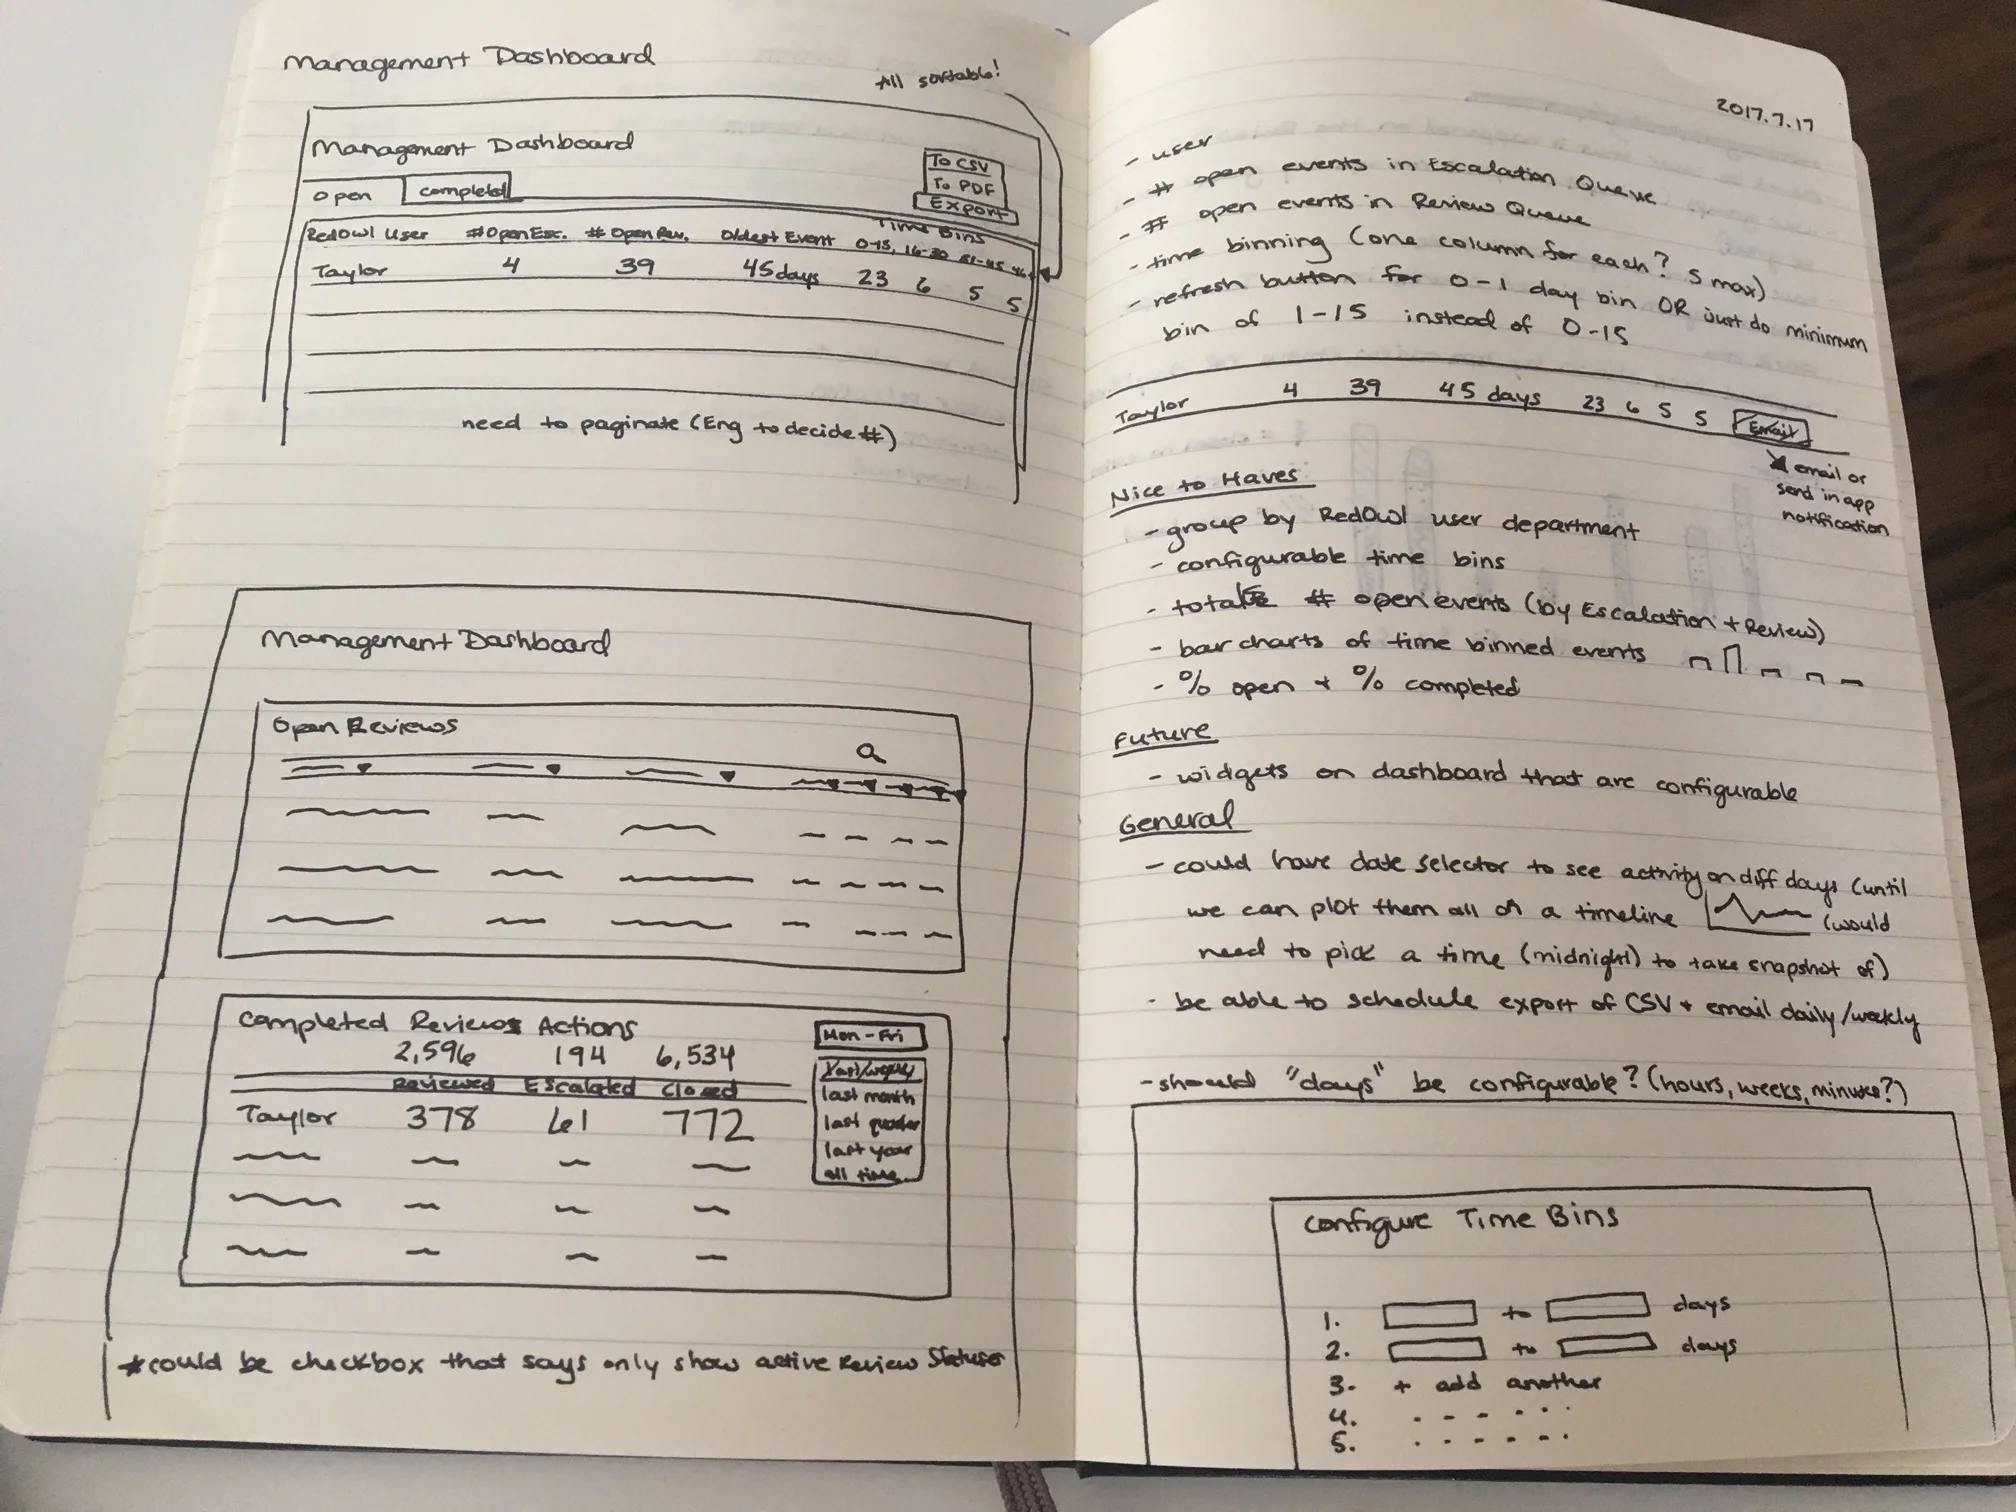 Management Dashboard
All sortable!
Management Dashboard
To CSV
To PDF
Export
open
completed
Time Bins
RedOwl User #OpenEsc. # Open Rev. Oldest Event 0-15, 16-30 31-45 46+
Taylor 4 39 45 days 23 6 5 5
need to paginate (Eng to decide #)
Management Dashboard
Open Reviews
Completed Reviews Actions
Mon - Fri
2,596 194 6,534
Reviewed Escalated Closed
Taylor 378 61 772
last month
last quarter
last year
all time
*could be checkbox that says only show active Review Statuses
2017.7.17
- user
- # open events in Escalation Queue
- # open events in Review Queue
- time binning (one column for each? 5 max)
- refresh button for 0-1 day bin OR just do minimum
bin of 1-15 instead of 0-15
Taylor 4 39 45 days 23 6 5 5 Email
email or
send in app
notification
Nice to Haves
- group by RedOwl user department
- configurable time bins
- total # open events (by Escalation + Review)
- bar charts of time binned events
- % open + % completed
Future
- widgets on dashboard that are configurable
General
- could have date selector to see activity on diff days (until
we can plot them all on a timeline (would
need to pick a time (midnight) to take snapshot of)
- be able to schedule export of CSV + email daily/weekly
- should "days" be configurable? (hours, weeks, minutes?)
Configure Time Bins
1. to days
2. to days
3. + add another
4.
5.